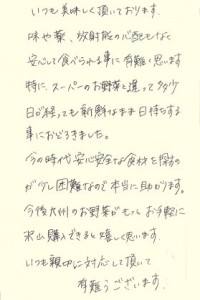 いつも美味しく頂いております。
味や薬、放射能の心配もなく
安心して食べられる事に有難く思います
特に、スーパーのお野菜と違って多少
日が経っても新鮮なまま日持ちする
事におどろきました。
今の時代安心安全な食材を探すの
が少し困難なので本当に助かります。
今後九州のお野菜がもっとお手軽に
沢山購入できると嬉しく思います。
いつも親切に対応して頂いて
有難うございます。